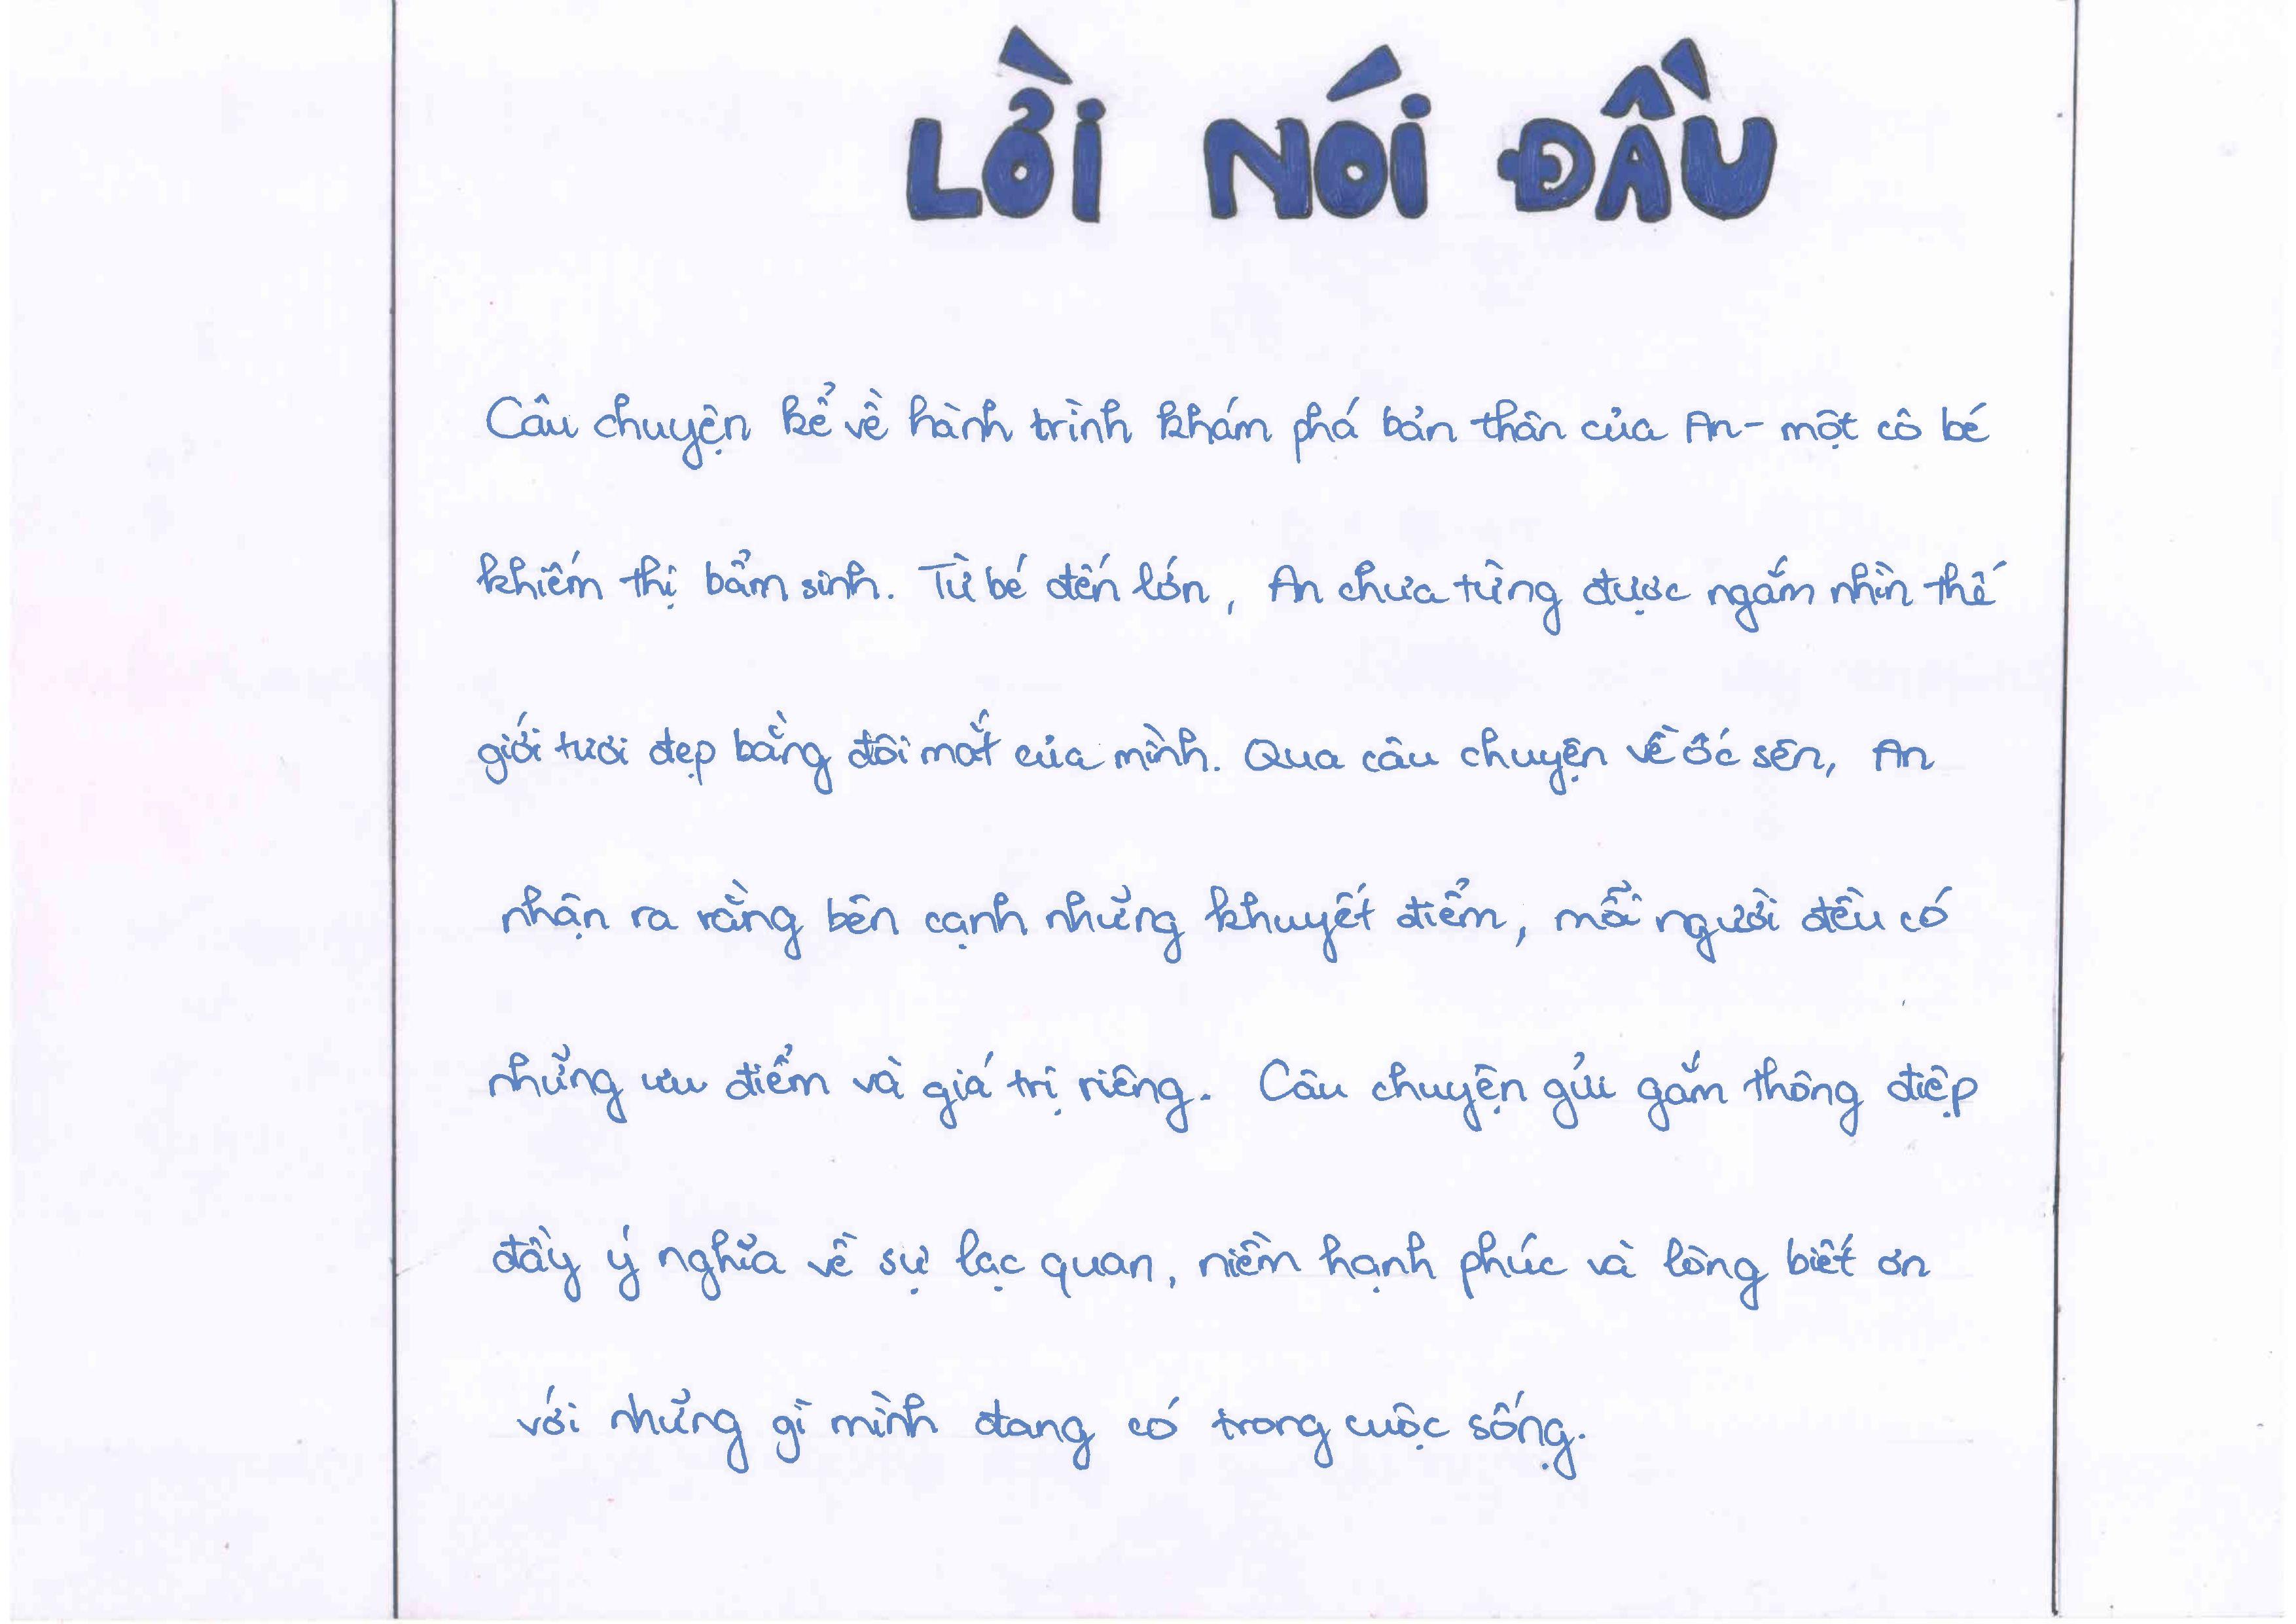 LỜI NÓI ĐẦU
Câu chuyện kể về hành trình khám phá bản thân của An- một cô bé
khiếm thị bẩm sinh. Từ bé đến lớn, An chưa từng được ngắm nhìn thế
giới tươi đẹp bằng đôi mắt của mình. Qua câu chuyện về ốc sên, An
nhận ra rằng bên cạnh những khuyết điểm, mỗi người đều có
những ưu điểm và giá trị riêng. Câu chuyện gửi gắm thông điệp
đầy ý nghĩa về sự lạc quan, niềm hạnh phúc và lòng biết ơn
với những gì mình đang có trong cuộc sống.